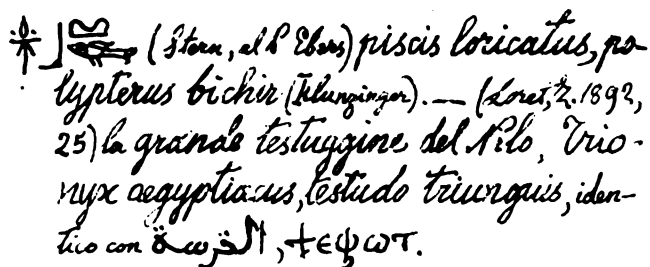 (Stern, al P Ebers) piscis loricatus, po-
lypterus bichir (Klunzinger). — (Loret, Z. 1892,
25) la grande testuggine del Nilo, Trio-
nyx aegyptiacus, testudo triunguis, iden-
tico con الترسة, ϯⲉⲯⲱⲧ.